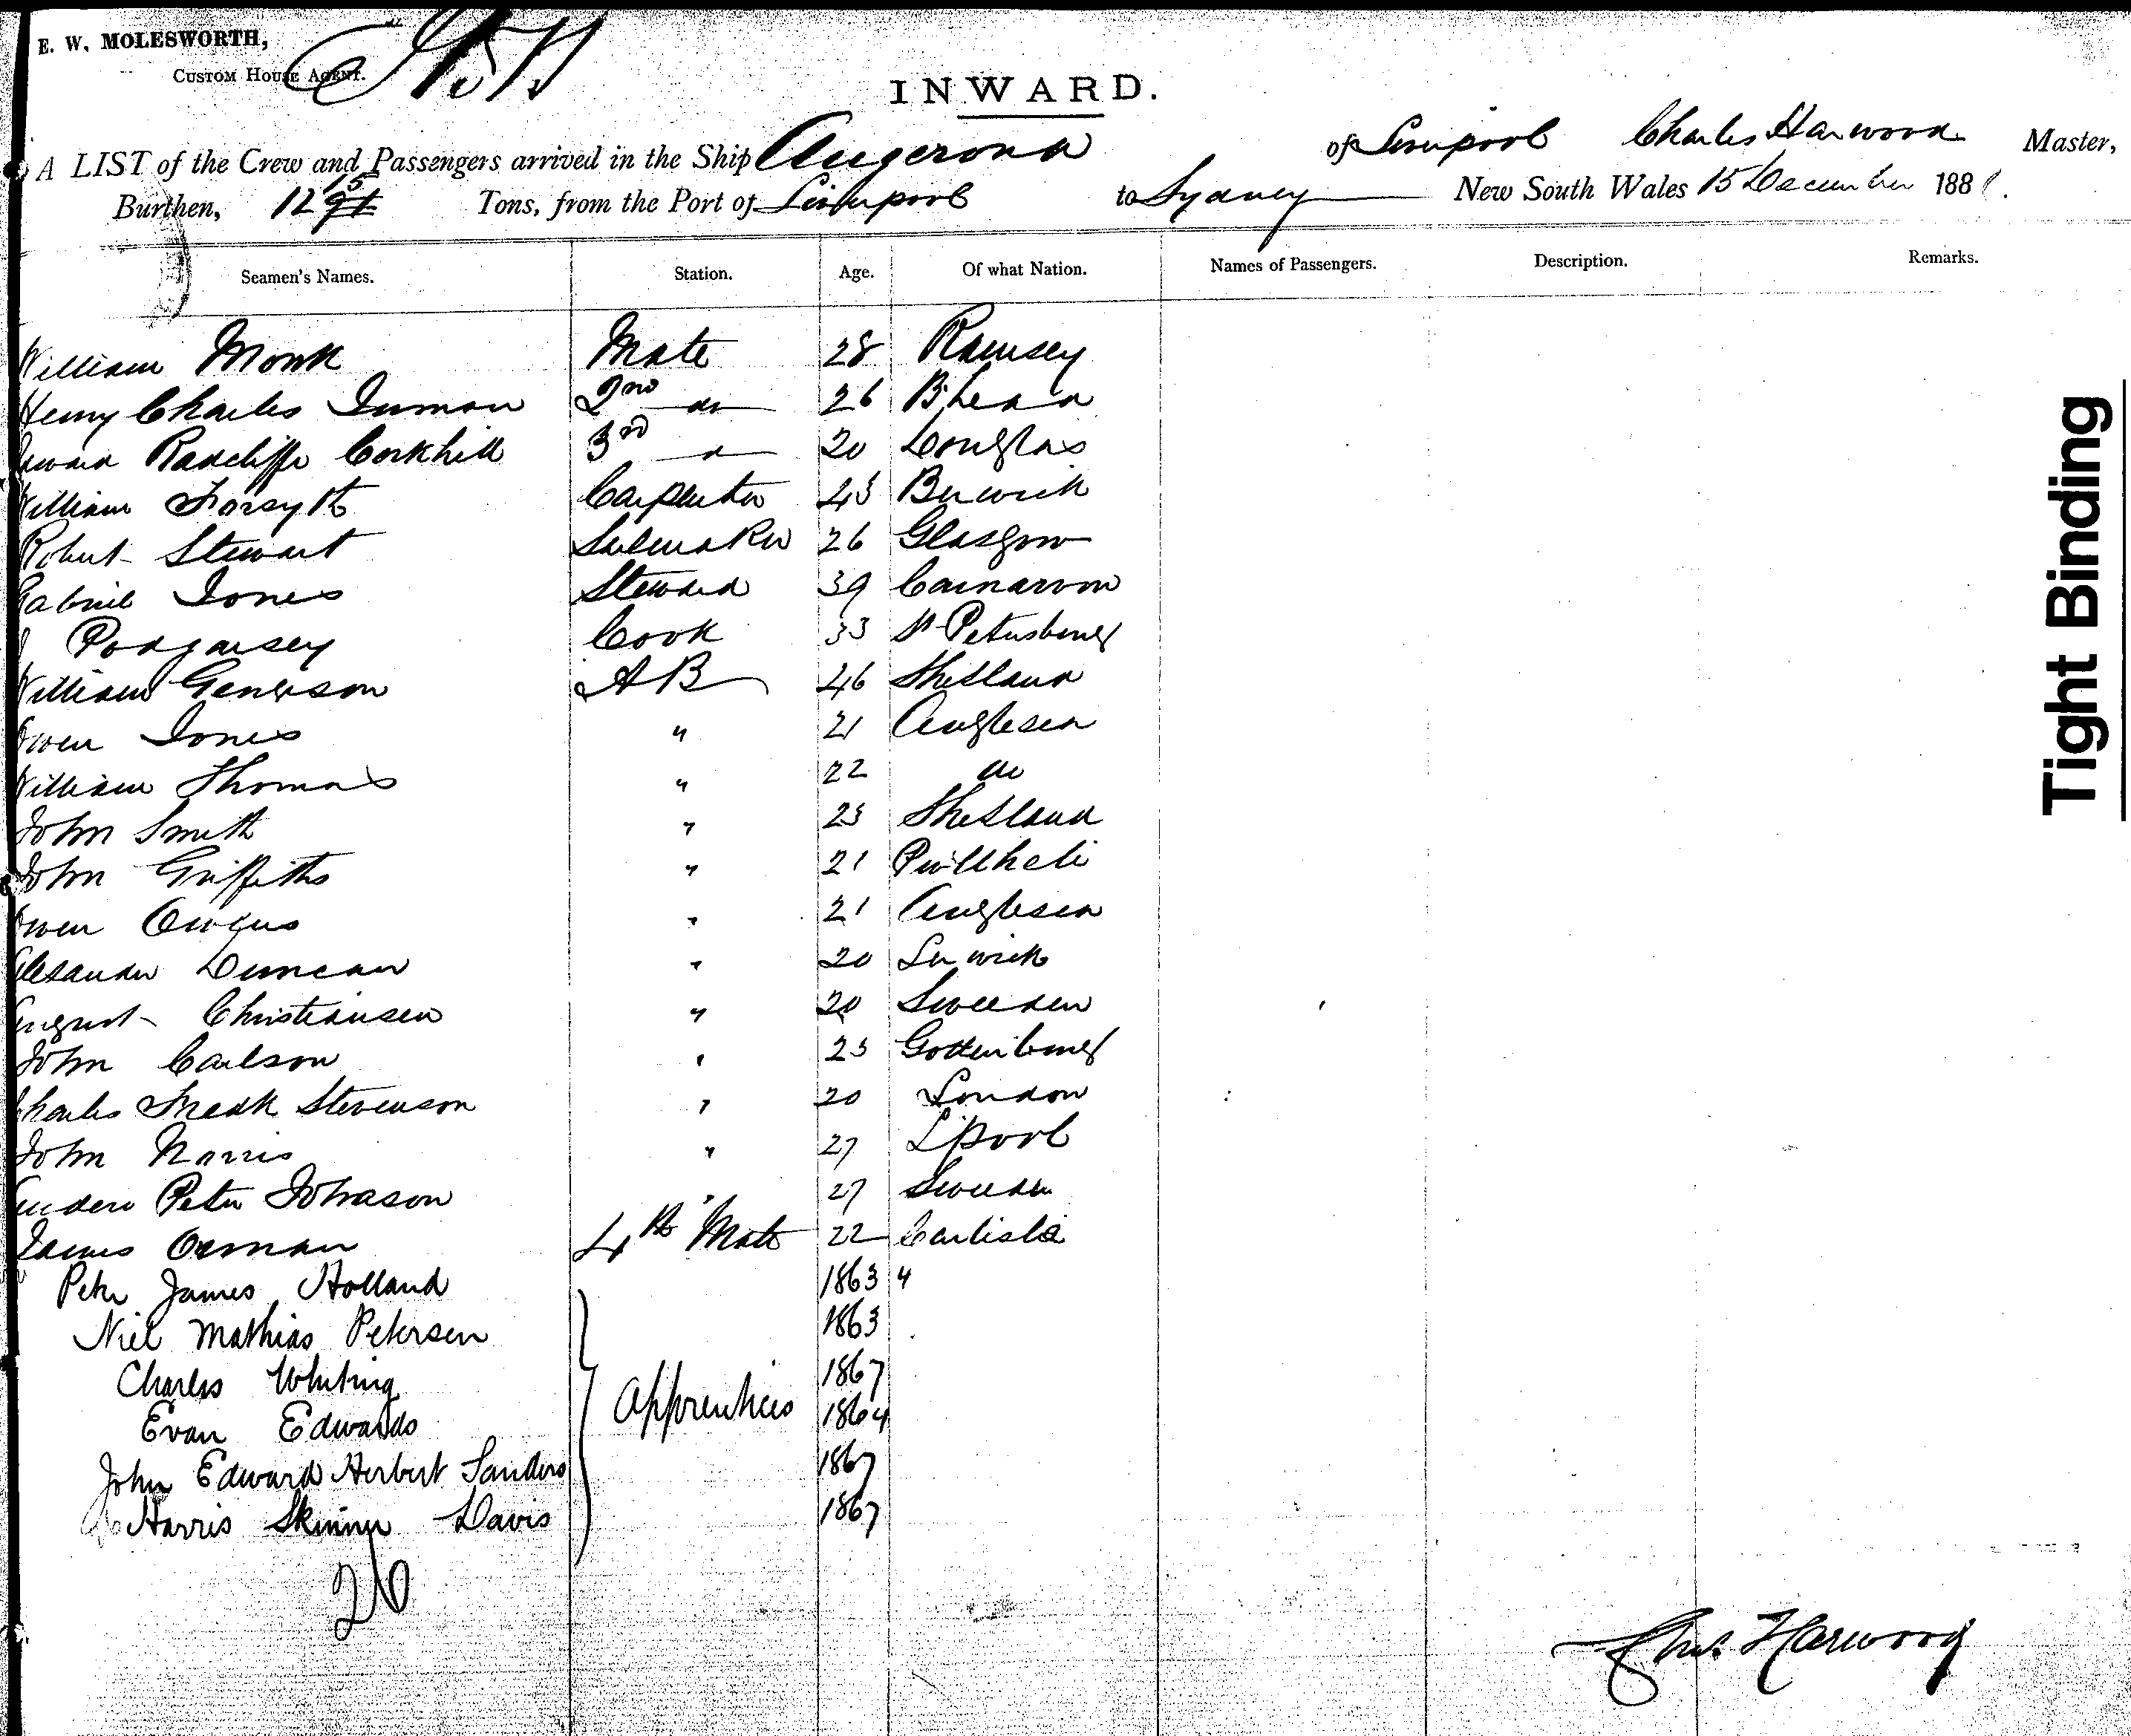 E. W. MOLESWORTH,
CUSTOM HOUSE AGENT.
INWARD.
A LIST of the Crew and Passengers arrived in the Ship Angerona of Liverpool Charles Harwood Master,
Burthen, 1215 Tons, from the Port of Liverpool to Sydney New South Wales 15 December 1881.
Seamen's Names. Station. Age. Of what Nation. Names of Passengers. Description. Remarks.
William Monk Mate 28 Ramsey
Henry Charles Inman 2nd do 26
Edward Radcliffe Corkhill 3rd do 20 Douglas
William Forsyth Carpenter 43 Berwick
Robert Stewart Sailmaker 26 Glasgow
Gabriel Jones Steward 39 Carnarvon
Cook 33 St Petersburg
William AB 46 Shetland
Owen Jones " 21 Anglesea
William Thomas " 22 do
John Smith " 23 Shetland
John Griffiths " 21 Pwllheli
Owen Owens " 21 Anglesea
Alexander Duncan " 20 Lerwick
August Christiansen " 20 Sweeden
John Carlson " 23 Gottenburg
Charles Fredk Stevenson " 20 London
John Norris " 27 L'pool
Anders Peter Johnason " 27 Sweeden
James Orman 4th Mate 22 Carlisle
Peter James Holland 1863 4
Niel Mathias Petersen 1863
Charles Whiting 1867
Apprentices
Evan Edwards 1864
John Edward Herbert Sanders 1867
Harris Skinner Davis 1867
26
Chas. Harwood
Tight Binding